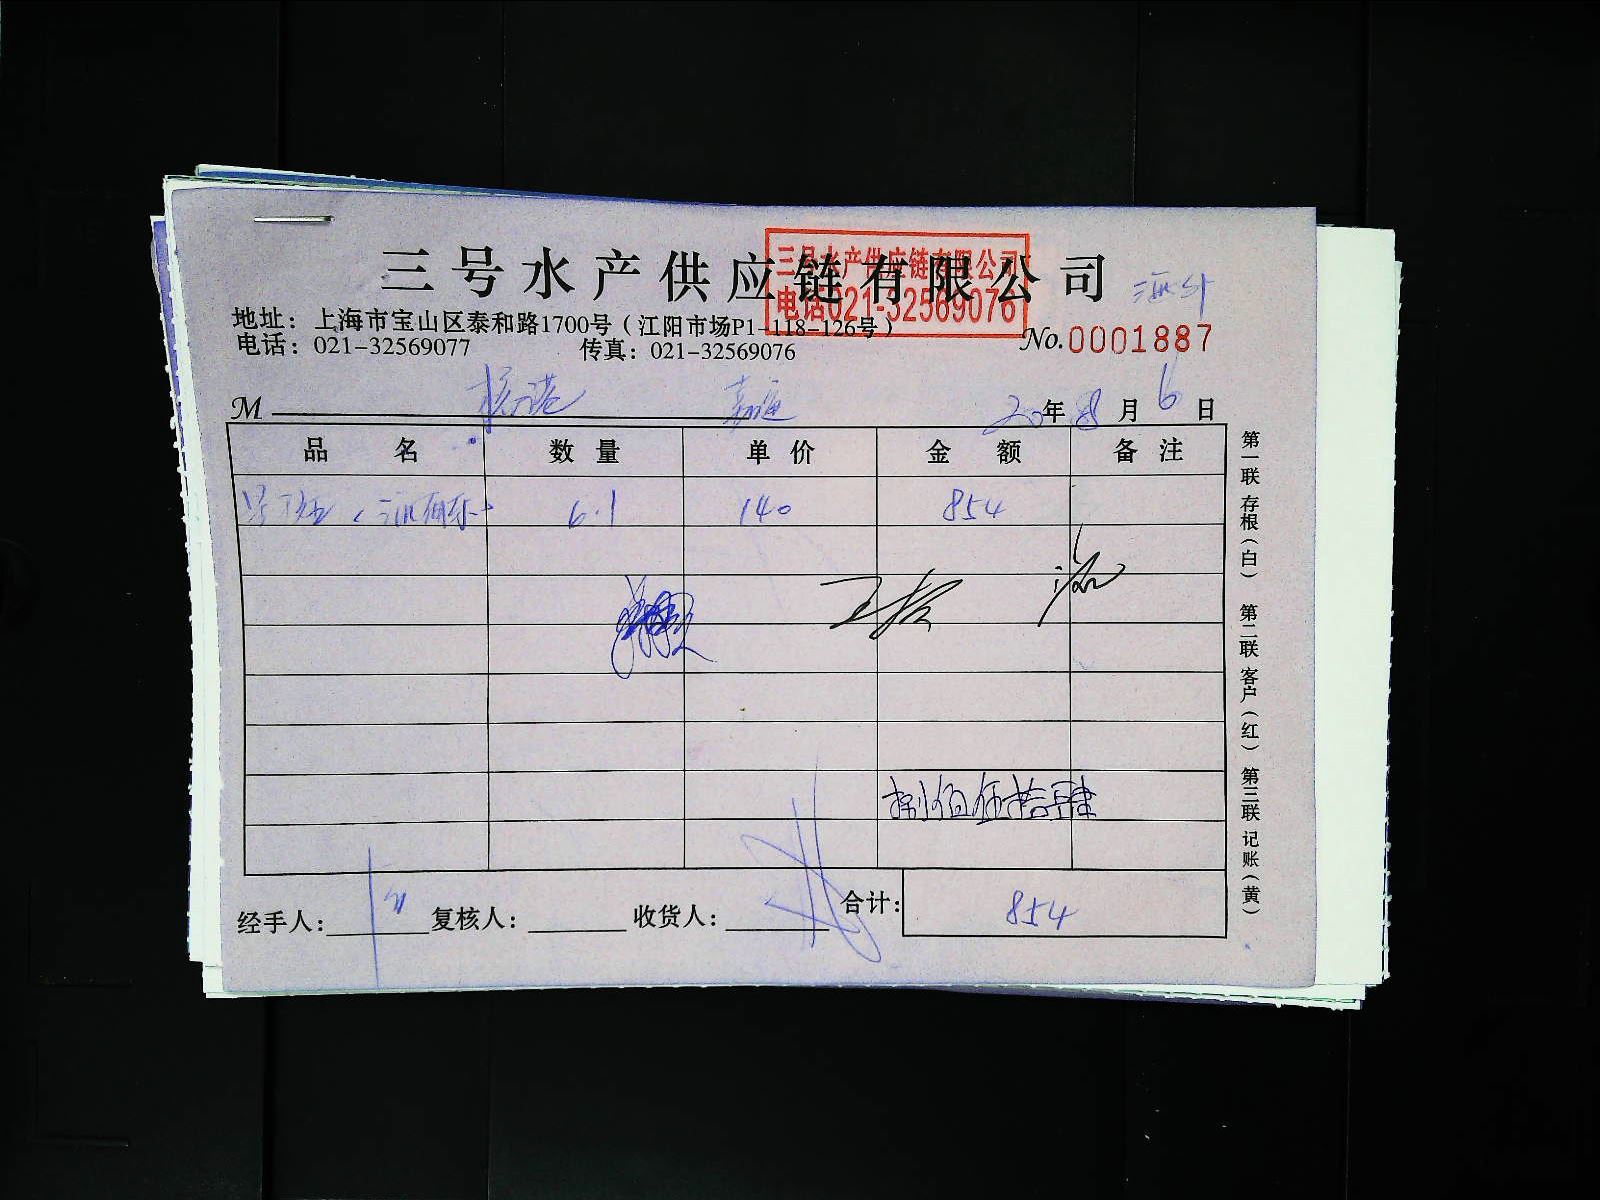 三号水产供应链有限公司
三号水产供应链有限公司
电话021-32569076
地址：上海市宝山区泰和路1700号（江阳市场P1-118-126号）
电话：021-32569077 传真：021-32569076
No.0001887
M 20年8月6日
品名 数量 单价 金额 备注
6.1 140 854
捌佰伍拾肆
经手人： 复核人： 收货人： 合计： 854
第一联 存根（白） 第二联 客户（红） 第三联 记账（黄）